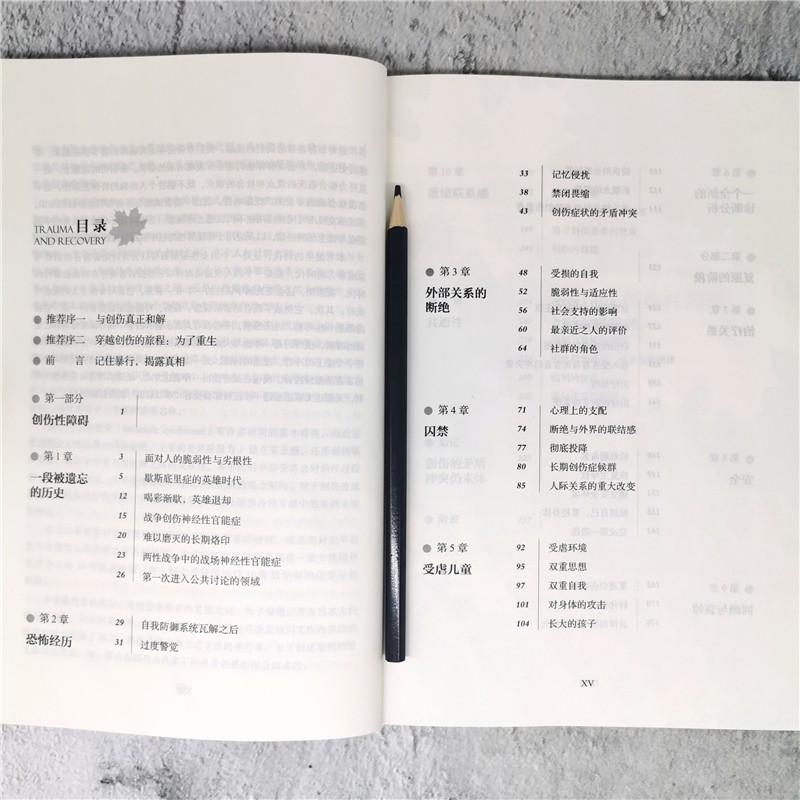 TRAUMA 目录
AND RECOVERY
推荐序一 与创伤真正和解
推荐序二 穿越创伤的旅程：为了重生
前 言 记住暴行，揭露真相
第一部分
创伤性障碍 1
第1章
一段被遗忘
的历史
3 面对人的脆弱性与劣根性
5 歇斯底里症的英雄时代
12 喝彩渐歇，英雄退却
15 战争创伤神经性官能症
20 难以磨灭的长期烙印
23 两性战争中的战场神经性官能症
26 第一次进入公共讨论的领域
第2章
恐怖经历
29 自我防御系统瓦解之后
31 过度警觉
33 记忆侵扰
38 禁闭畏缩
43 创伤症状的矛盾冲突
第3章
外部关系的
断绝
48 受损的自我
52 脆弱性与适应性
56 社会支持的影响
60 最亲近之人的评价
64 社群的角色
第4章
囚禁
71 心理上的支配
74 断绝与外界的联结感
77 彻底投降
80 长期创伤症候群
85 人际关系的重大改变
第5章
受虐儿童
92 受虐环境
95 双重思想
97 双重自我
101 对身体的攻击
104 长大的孩子
XV